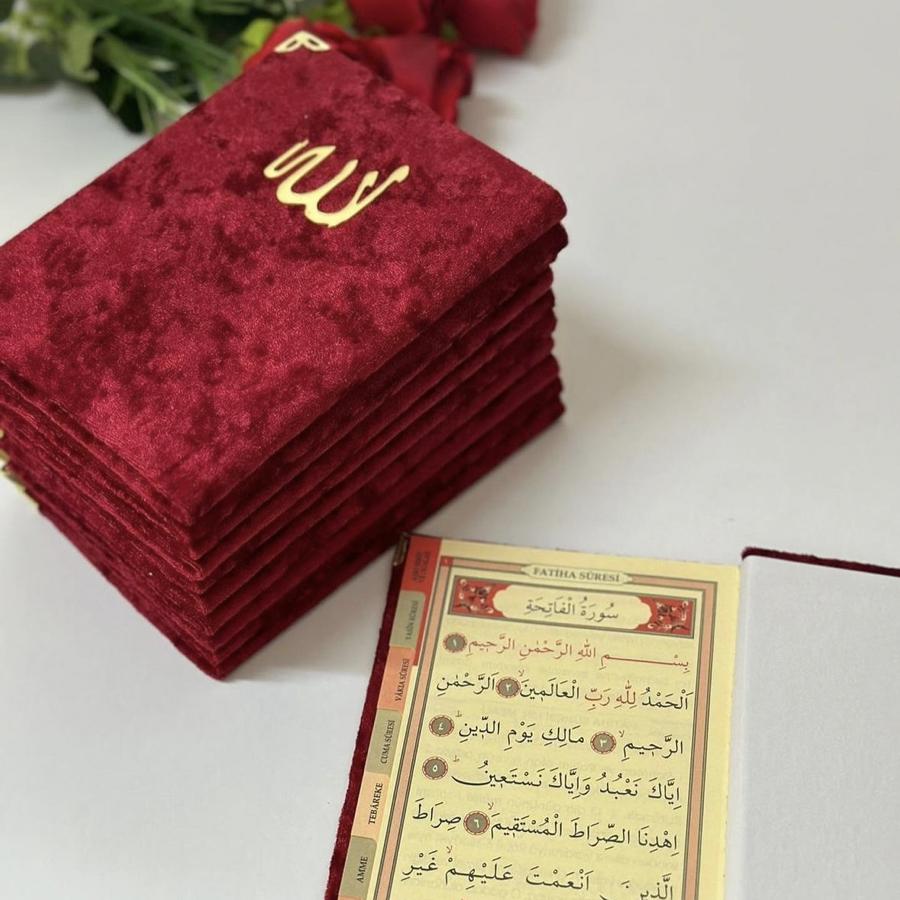 الله
FATİHA SÛRESİ
سُورَةُ الْفَاتِحَةِ
بِسْمِ اللهِ الرَّحْمٰنِ الرَّحِيمِ ﴿١﴾
اَلْحَمْدُ لِلّٰهِ رَبِّ الْعَالَمِينَۙ ﴿٢﴾ اَلرَّحْمٰنِ
الرَّحِيمِۙ ﴿٣﴾ مَالِكِ يَوْمِ الدِّينِۜ ﴿٤﴾
اِيَّاكَ نَعْبُدُ وَاِيَّاكَ نَسْتَعِينُۜ ﴿٥﴾
اِهْدِنَا الصِّرَاطَ الْمُسْتَقِيمَۙ ﴿٦﴾ صِرَاطَ
الَّذِينَ اَنْعَمْتَ عَلَيْهِمْۙ غَيْرِ
YASİN SÛRESİ
VAKIA SÛRESİ
CUMA SÛRESİ
TEBÂREKE
AMME